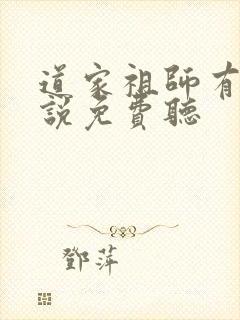 道家祖師有
說免費聽
鄧萍